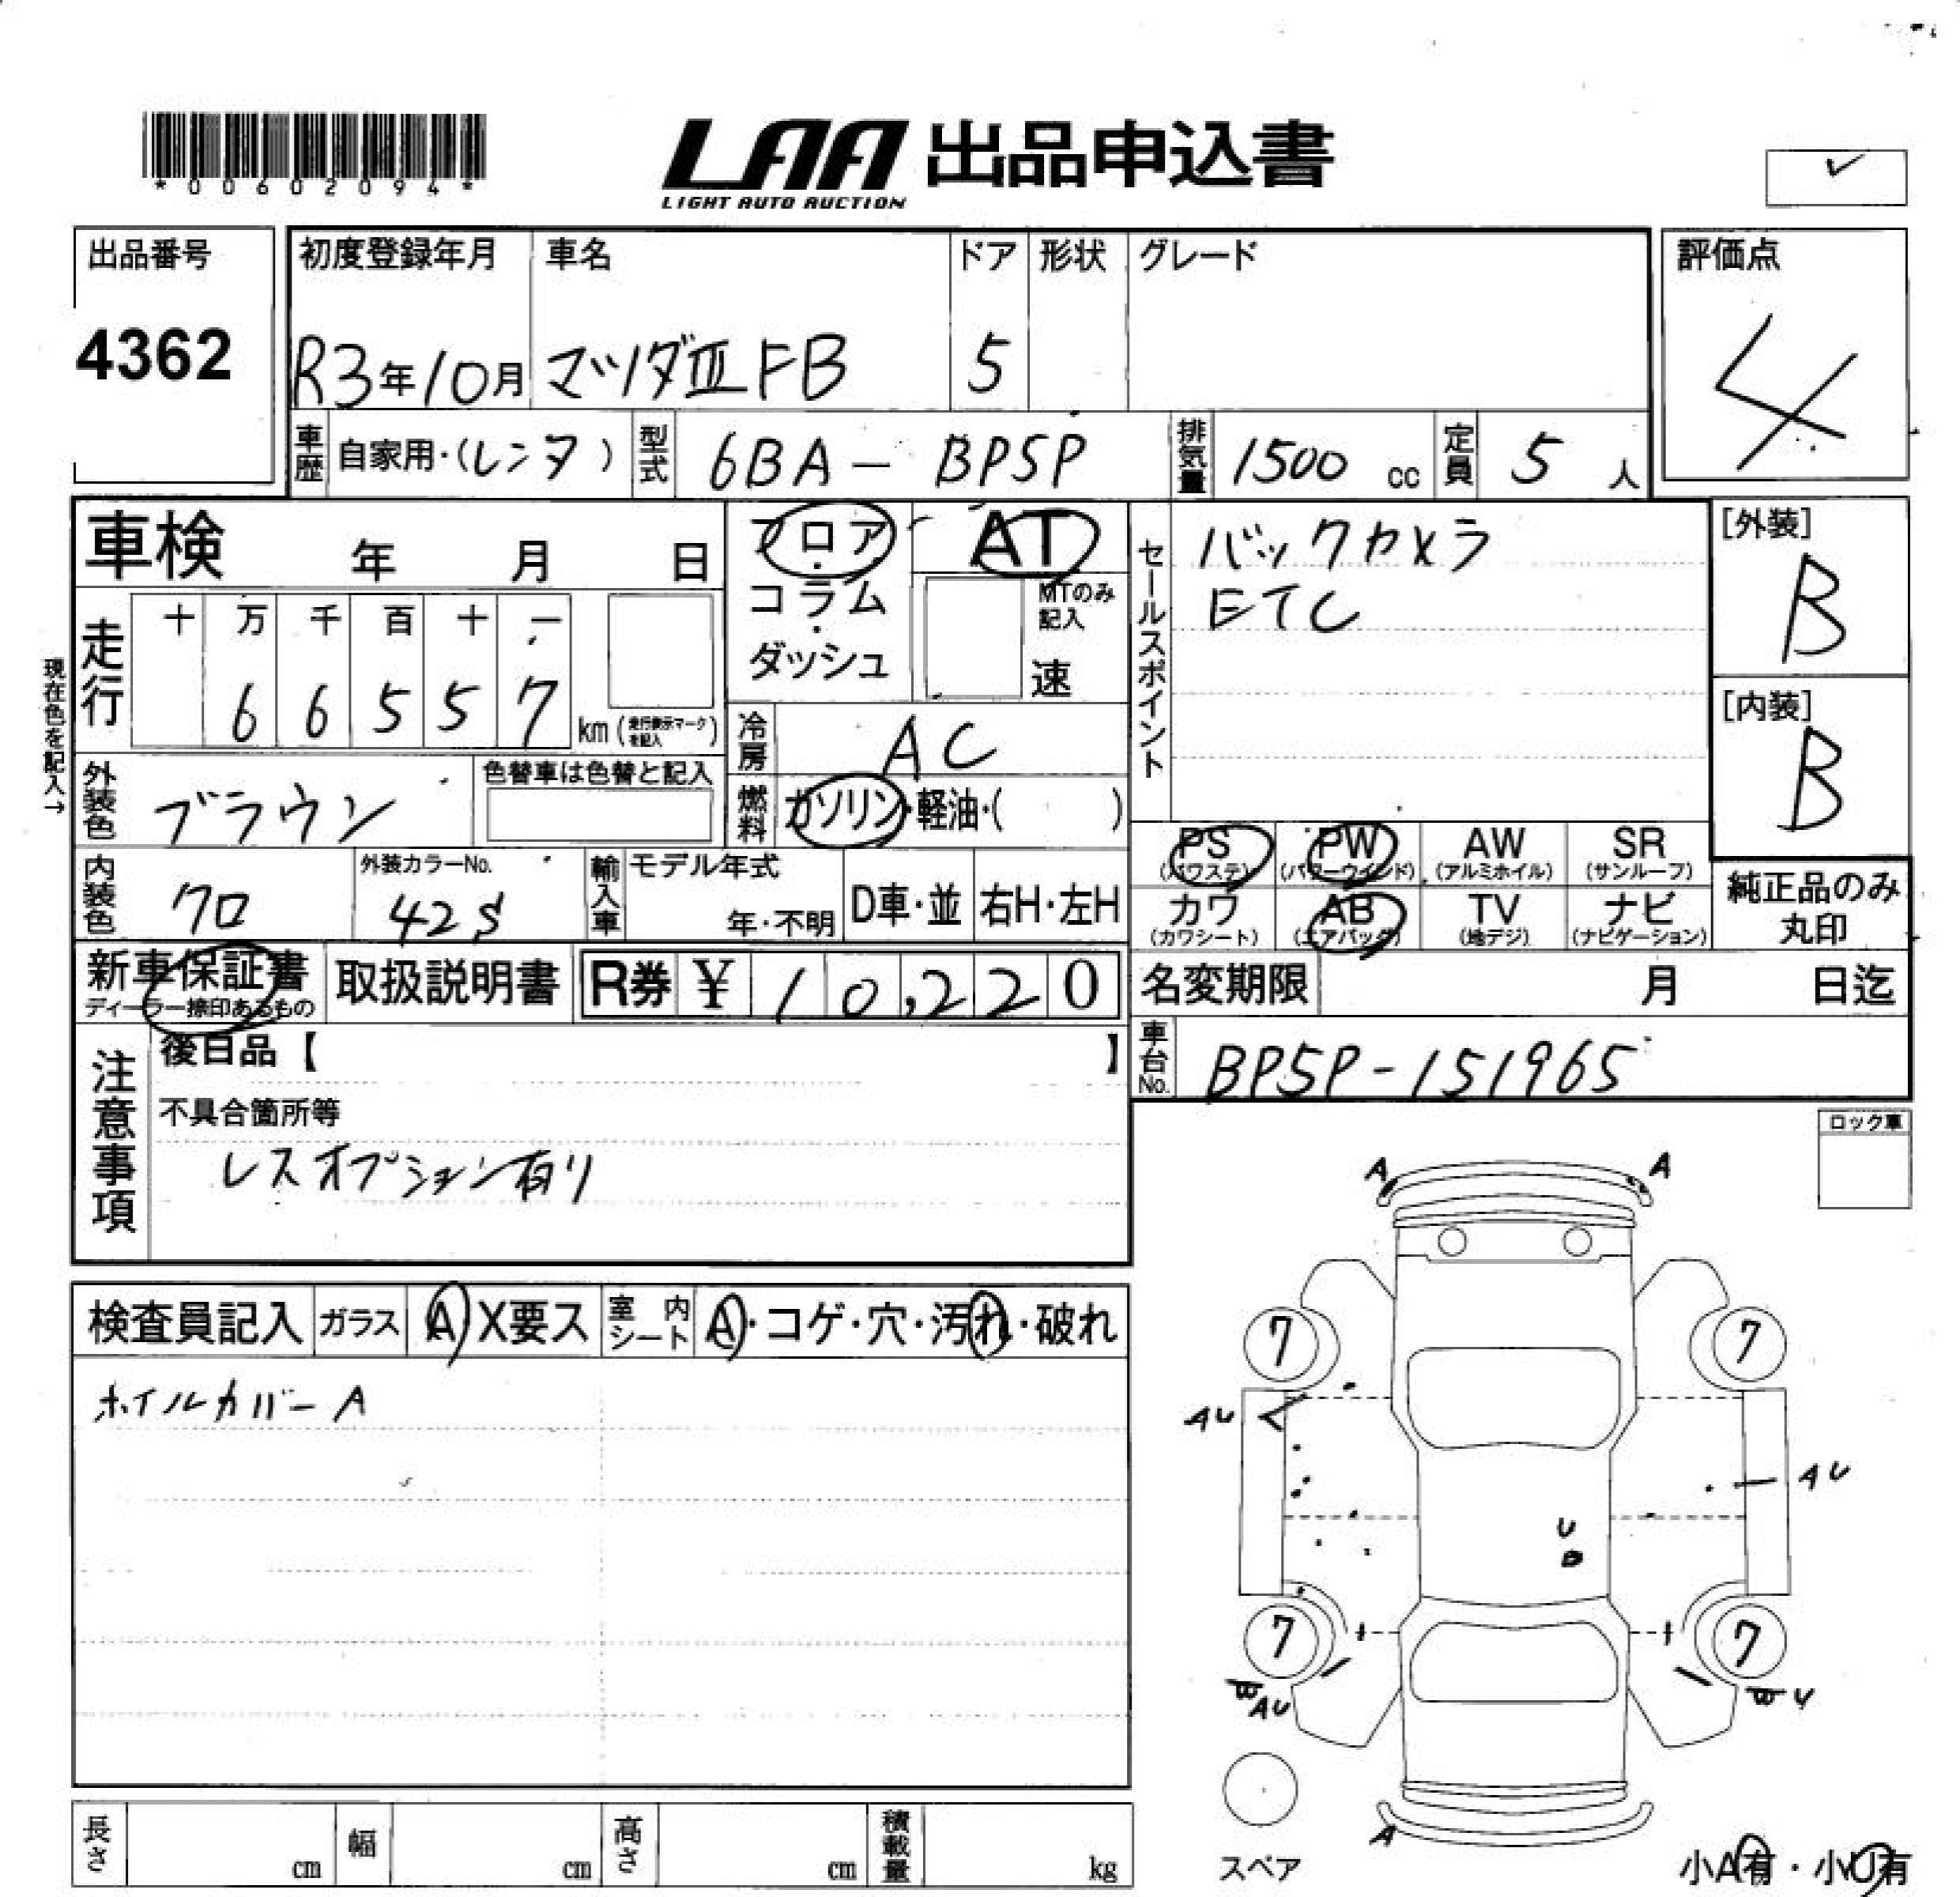 *00602094*
LAA 出品申込書
LIGHT AUTO AUCTION
✓
出品番号
4362
初度登録年月 車名 ドア 形状 グレード
R3年10月 マツダⅢFB 5
評価点
4
車歴 自家用・(レンタ) 型式 6BA- BP5P 排気量 1500cc 定員 5人
車検 年 月 日
フロア・コラム・ダッシュ
AT
MTのみ記入
速
セールスポイント
バックカメラ
ETC
[外装]
B
[内装]
B
現在色を記入→
走行 十 万 千 百 十 一
6 6 5 5 7 km(走行表示マークを記入)
冷房 AC
外装色 ブラウン 色替車は色替と記入
燃料 ガソリン・軽油・( )
PS(パワステ) PW(パワーウインド) AW(アルミホイル) SR(サンルーフ)
カワ(カワシート) AB(エアバッグ) TV(地デジ) ナビ(ナビゲーション)
純正品のみ丸印
内装色 クロ 外装カラーNo. 42S 輸入車 モデル年式 年・不明 D車・並 右H・左H
新車保証書 取扱説明書 R券 ¥ 10,220
ディーラー捺印あるもの
名変期限 月 日迄
車台No. BP5P-151965
注意事項
後日品【 】
不具合箇所等
レスオプション有り
ロック車
検査員記入 ガラス A X要ス 室内シート A・コゲ・穴・汚れ・破れ
ホイルカバーA
A A
7 7
AU
AU
U
7 7
W AU
W U
A
スペア
小A有・小U有
長さ cm 幅 cm 高さ cm 積載量 kg